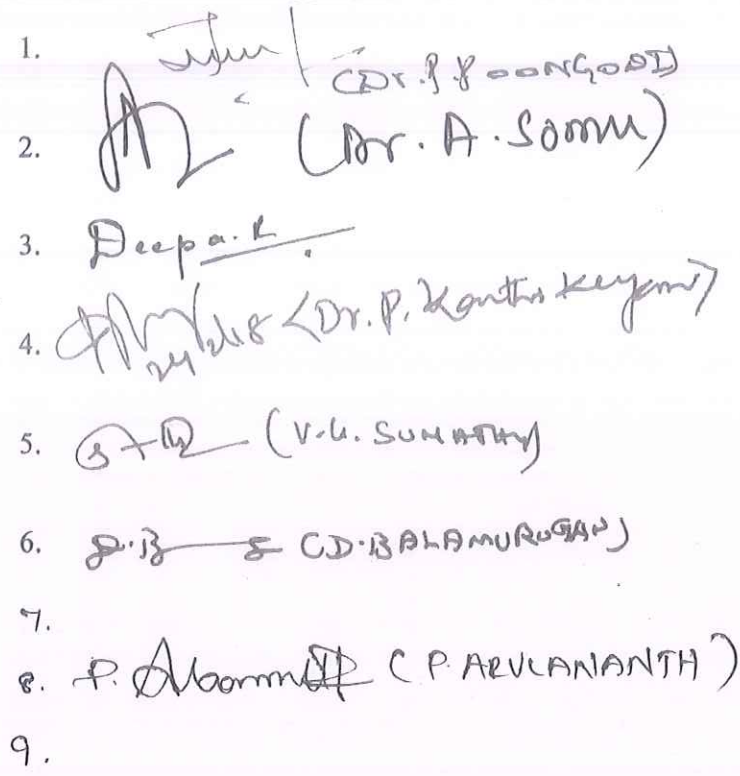 1. (Dr. P. POONGODI)
2. (Dr. A. Somu)
3. Deepa.R
4. (Dr. P. Karthikeyan)
5. (V.G. SUMATHY)
6. D.B (D.BALAMURUGAN)
7.
8. P. (P. ARULANANTH)
9.